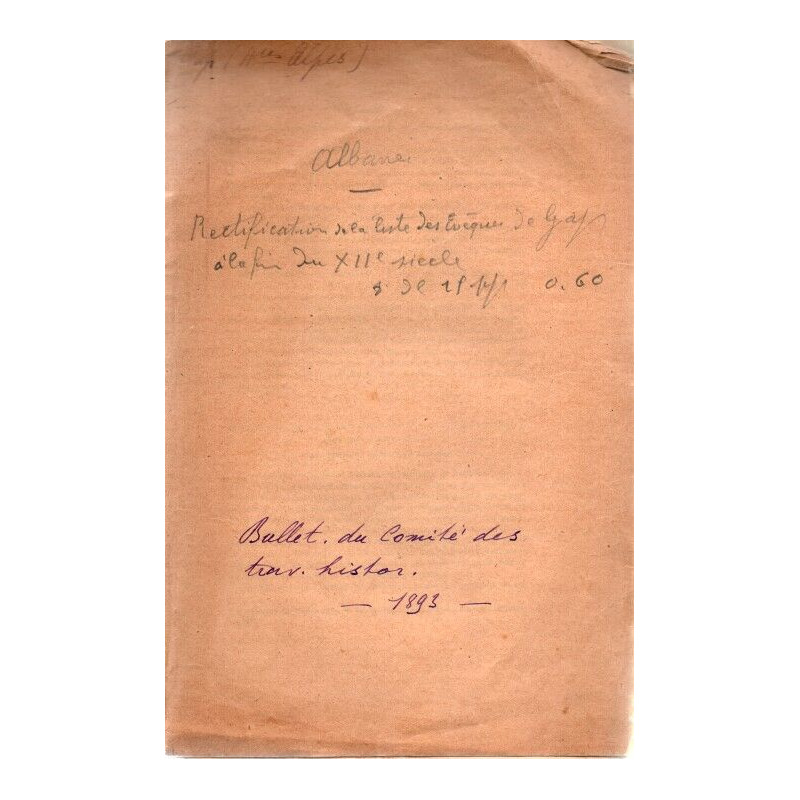 (Htes Alpes)
Albanes
—
Rectification de la liste des Evêques de Gap
à la fin du XIIe siècle
8 de 15 pp 0.60
Bullet. du Comité des
trav. histor.
— 1893 —